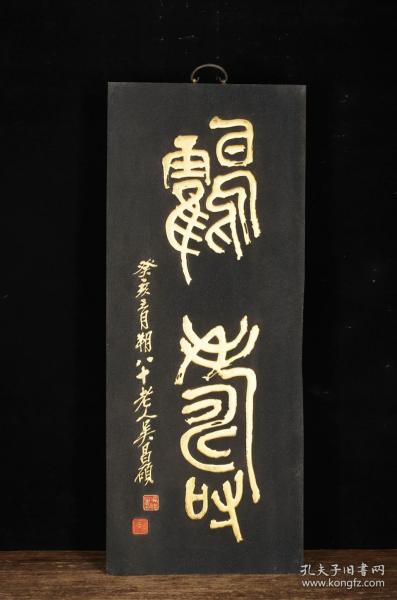 鶴壽
癸亥五月朔八十老人吳昌碩
孔夫子旧书网
www.kongfz.com